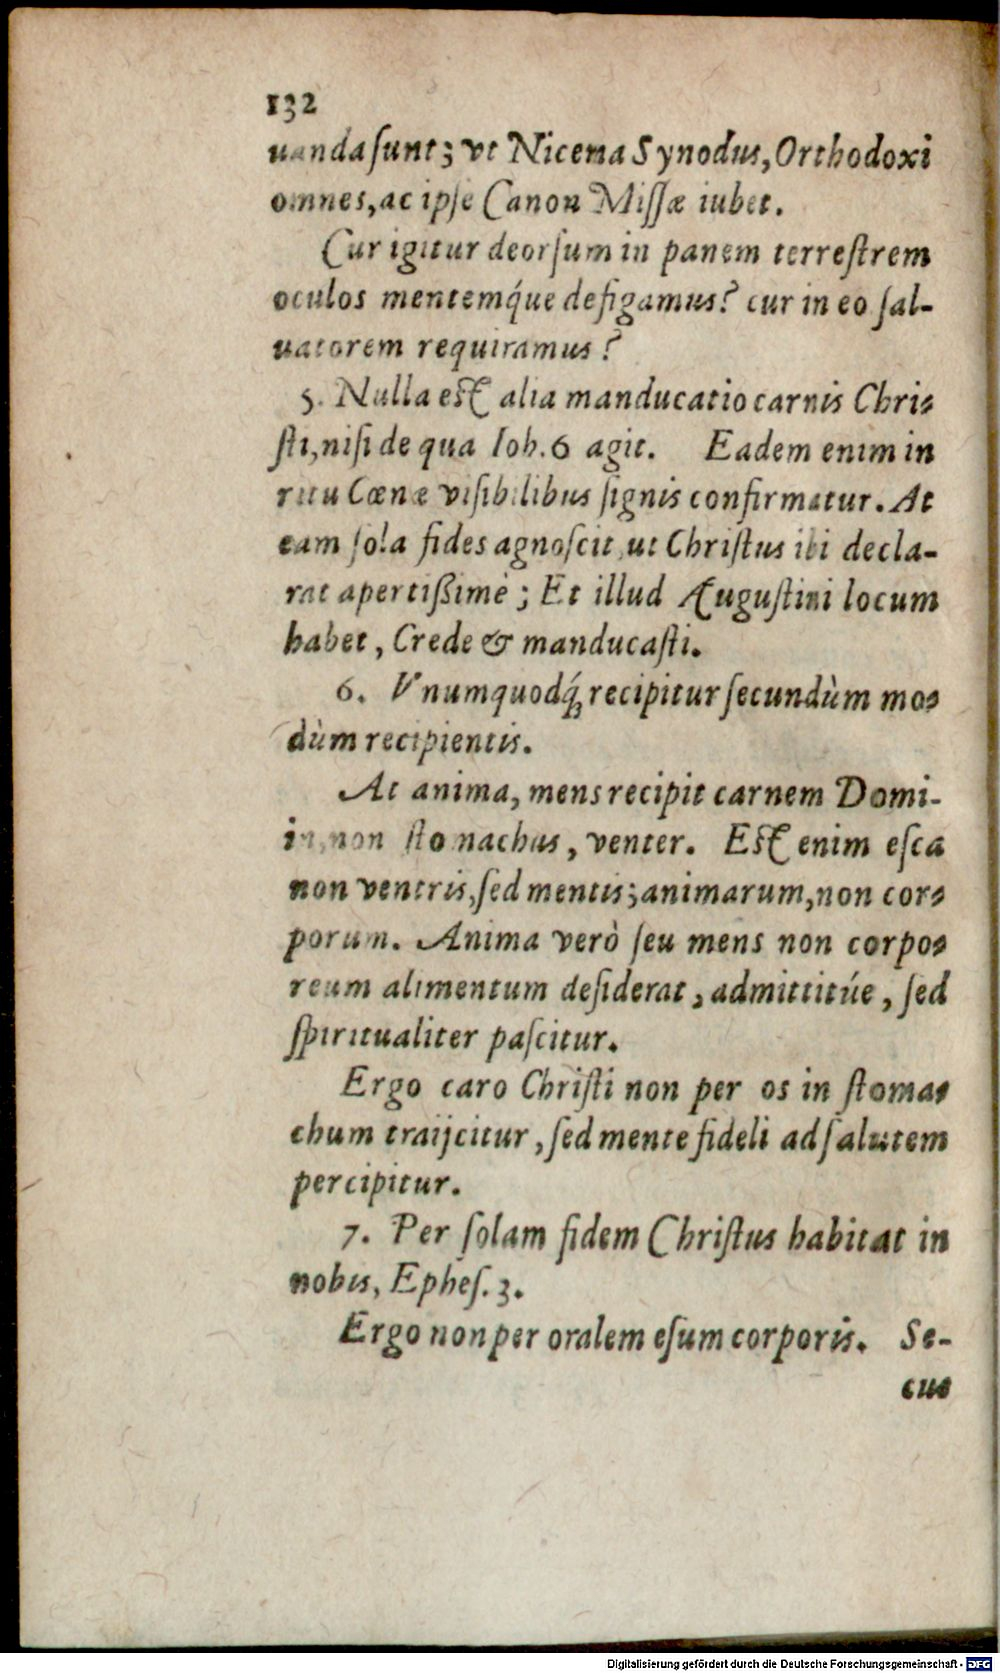 132
uanda ſunt; vt Nicena Synodus, Orthodoxi
omnes, ac ipſe Canon Miſſæ iubet.
Cur igitur deorſum in panem terreſtrem
oculos mentemq́ue defigamus? cur in eo ſal-
uatorem requiramus?
5. Nulla eſt alia manducatio carnis Chri-
ſti, niſi de qua Ioh. 6 agit. Eadem enim in
ritu Cœnæ viſibilibus ſignis confirmatur. At
eam ſola fides agnoſcit, ut Chriſtus ibi decla-
rat apertißimè; Et illud Auguſtini locum
habet, Crede & manducaſti.
6. Vnumquodq́; recipitur ſecundùm mo-
dùm recipientis.
At anima, mens recipit carnem Domi-
in, non ſtomachus, venter. Eſt enim eſca
non ventris, ſed mentis; animarum, non cor-
porum. Anima verò ſeu mens non corpo-
reum alimentum deſiderat, admittitúe, ſed
ſpiritualiter paſcitur.
Ergo caro Chriſti non per os in ſtoma-
chum traijcitur, ſed mente fideli ad ſalutem
percipitur.
7. Per ſolam fidem Chriſtus habitat in
nobis, Epheſ. 3.
Ergo non per oralem eſum corporis. Se-
cus
Digitalisierung gefördert durch die Deutsche Forschungsgemeinschaft - DFG